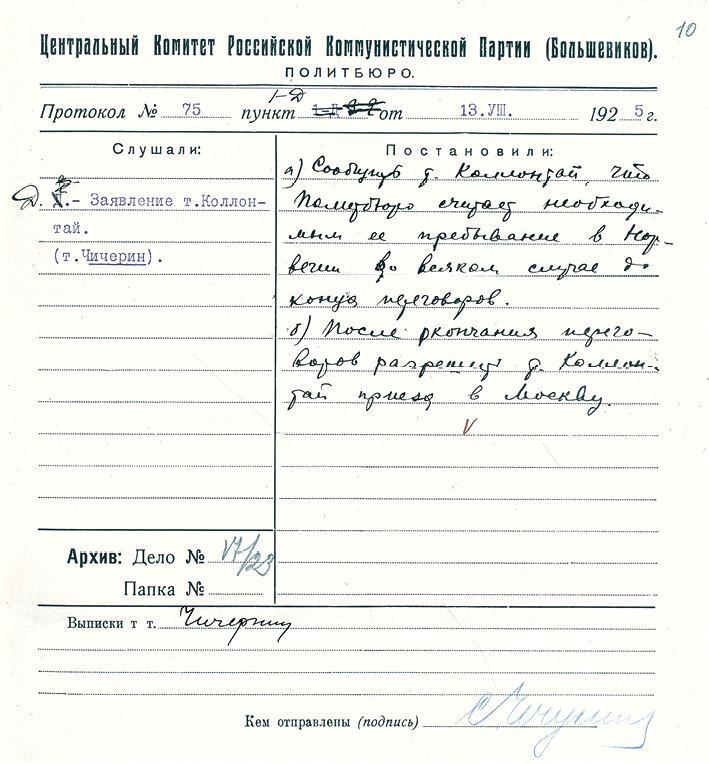 10
Центральный Комитет Российской Коммунистической Партии (Большевиков).
ПОЛИТБЮРО.
1-Д
Протокол № 75 пункт от 13.УШ. 1925 г.
Слушали:
Постановили:
Д.- Заявление т.Коллон-
тай.
(т.Чичерин).
а) Сообщить т. Коллонтай, что
Политбюро считает необходи-
мым ее пребывание в Нор-
вегии во всяком случае до
конца переговоров.
б) После окончания перего-
воров разрешить т. Коллон-
тай приезд в Москву.
V
Архив: Дело № VI/23
Папка №
Выписки т т. Чичерину
Кем отправлены (подпись)